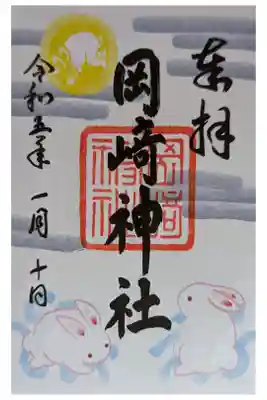 奉拝
岡﨑神社
岡崎神社
令和五年 一月 十日